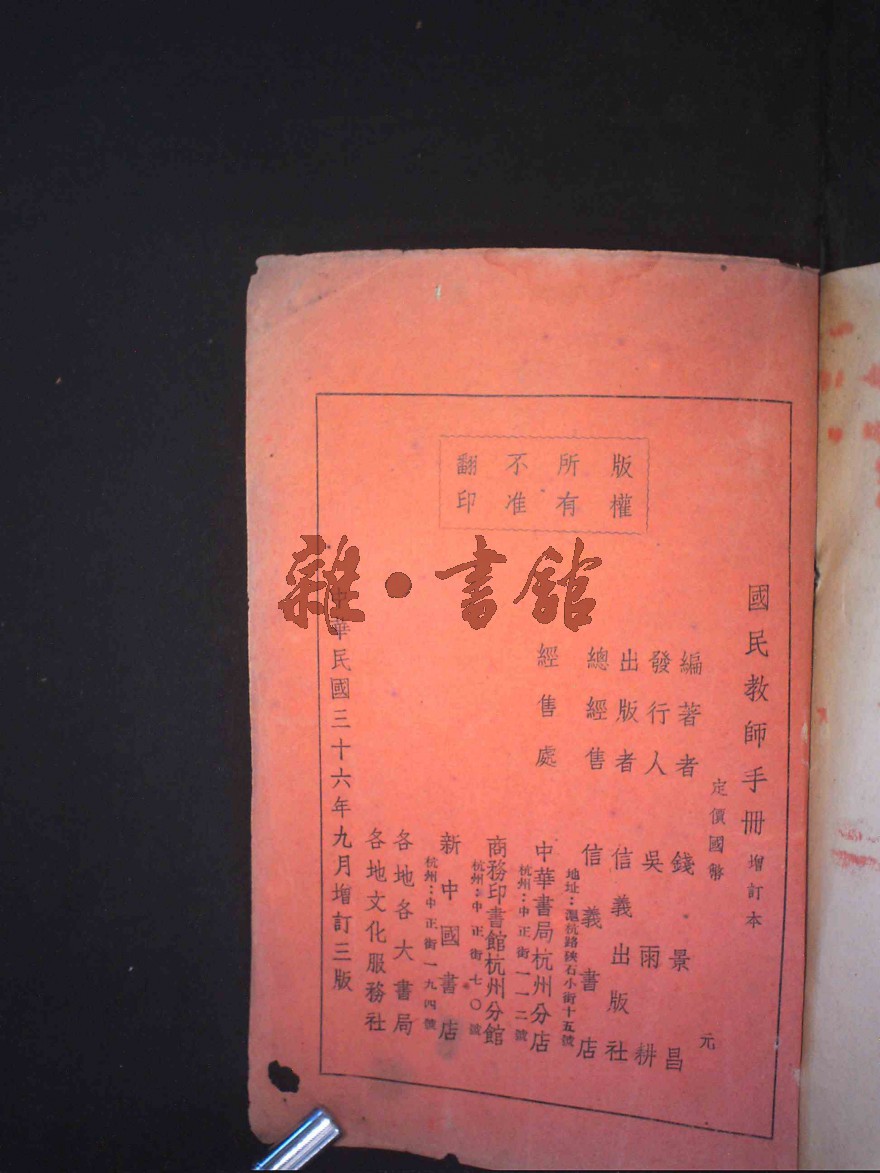 版權
所有
不准
翻印
國民教師手冊 增訂本
定價國幣 元
編著者 錢景昌
發行人 吳雨耕
出版者 信義出版社
總經售 信義書店
地址：滬杭路硤石小街十五號
經售處 中華書局杭州分店
杭州：中正街一一二號
商務印書館杭州分館
杭州：中正街七〇號
新中國書店
杭州：中正街一九四號
各地各大書局
各地文化服務社
中華民國三十六年九月增訂三版
雜·書館